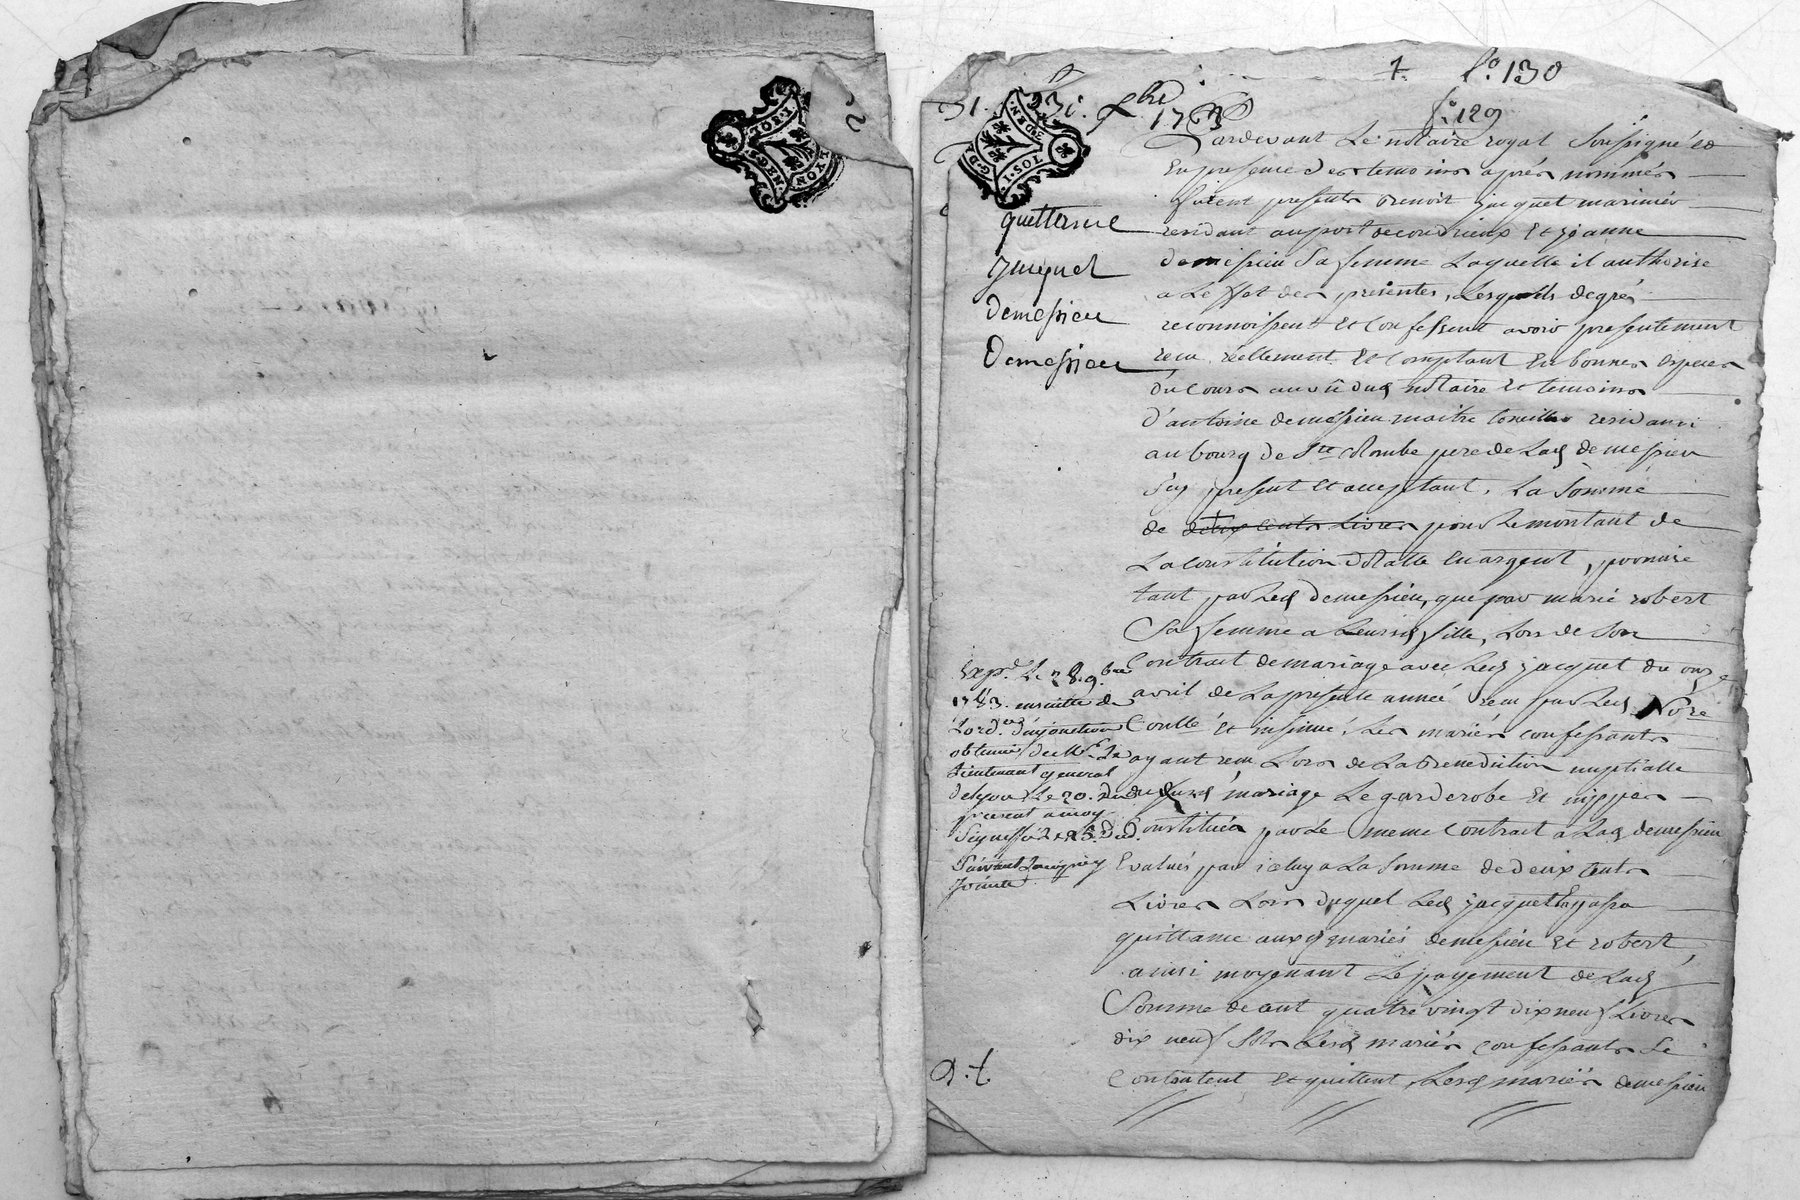 1. f.º 130
f.º 129
31. Xbre
quittance
jacquet
demessieu
Demessieu
Pardevant Le notaire royal Soussigné et
En presence des temoins aprés nommés
furent presents Benoit jacquet marinier
residant au port de condrieux Et jeanne
demessieu Sa femme Laquelle il authorise
a Leffet des presentes, Lesquels de gré
reconnoissent Et Confessent avoir presentement
recu réellement Et Comptant En bonnes especes
du Cours au vû dud notaire Et temoins
d'antoine demessieu maitre residant
au bourg de Ste Colombe pere de Lad demessieu
Icy present Et acceptant, La Somme
de deux Cents Livres pour Le montant de
La Constitution dotalle En argent, promise
tant par Led demessieu, que par marie robert
Sa femme a Leurd fille, Lors de Son
Contrait de mariage avec Led jacquet du onze
avril de La presente année recu par Led Nore
Contlé Et insinué, Les mariés confessants
ayant recu Lors de La Benediction nuptialle
du Susd mariage Le garderobe Et nippes
Constitués par Le meme Contrait a Lad demessieu
Evalués par iceluy a La Somme de deux Cents
Livres Lors duquel Led jacquet En passa
quittance auxd mariés demessieu Et robert,
ainsi moyenant Le payement de Lad
Somme de Cent quatre vingt dix neuf Livres
dix neuf Sols Lesd mariés confessants Se
Contentent Et quittent, Lesd mariés demessieu
Expd. Le 28. 9bre
ensuitte de
Lord. d'injonction
obtenüe de Mr. Le
Lieutenant general
de Lyon Le 20. du
present
jointe
I.SOL
LYON
I.SOL